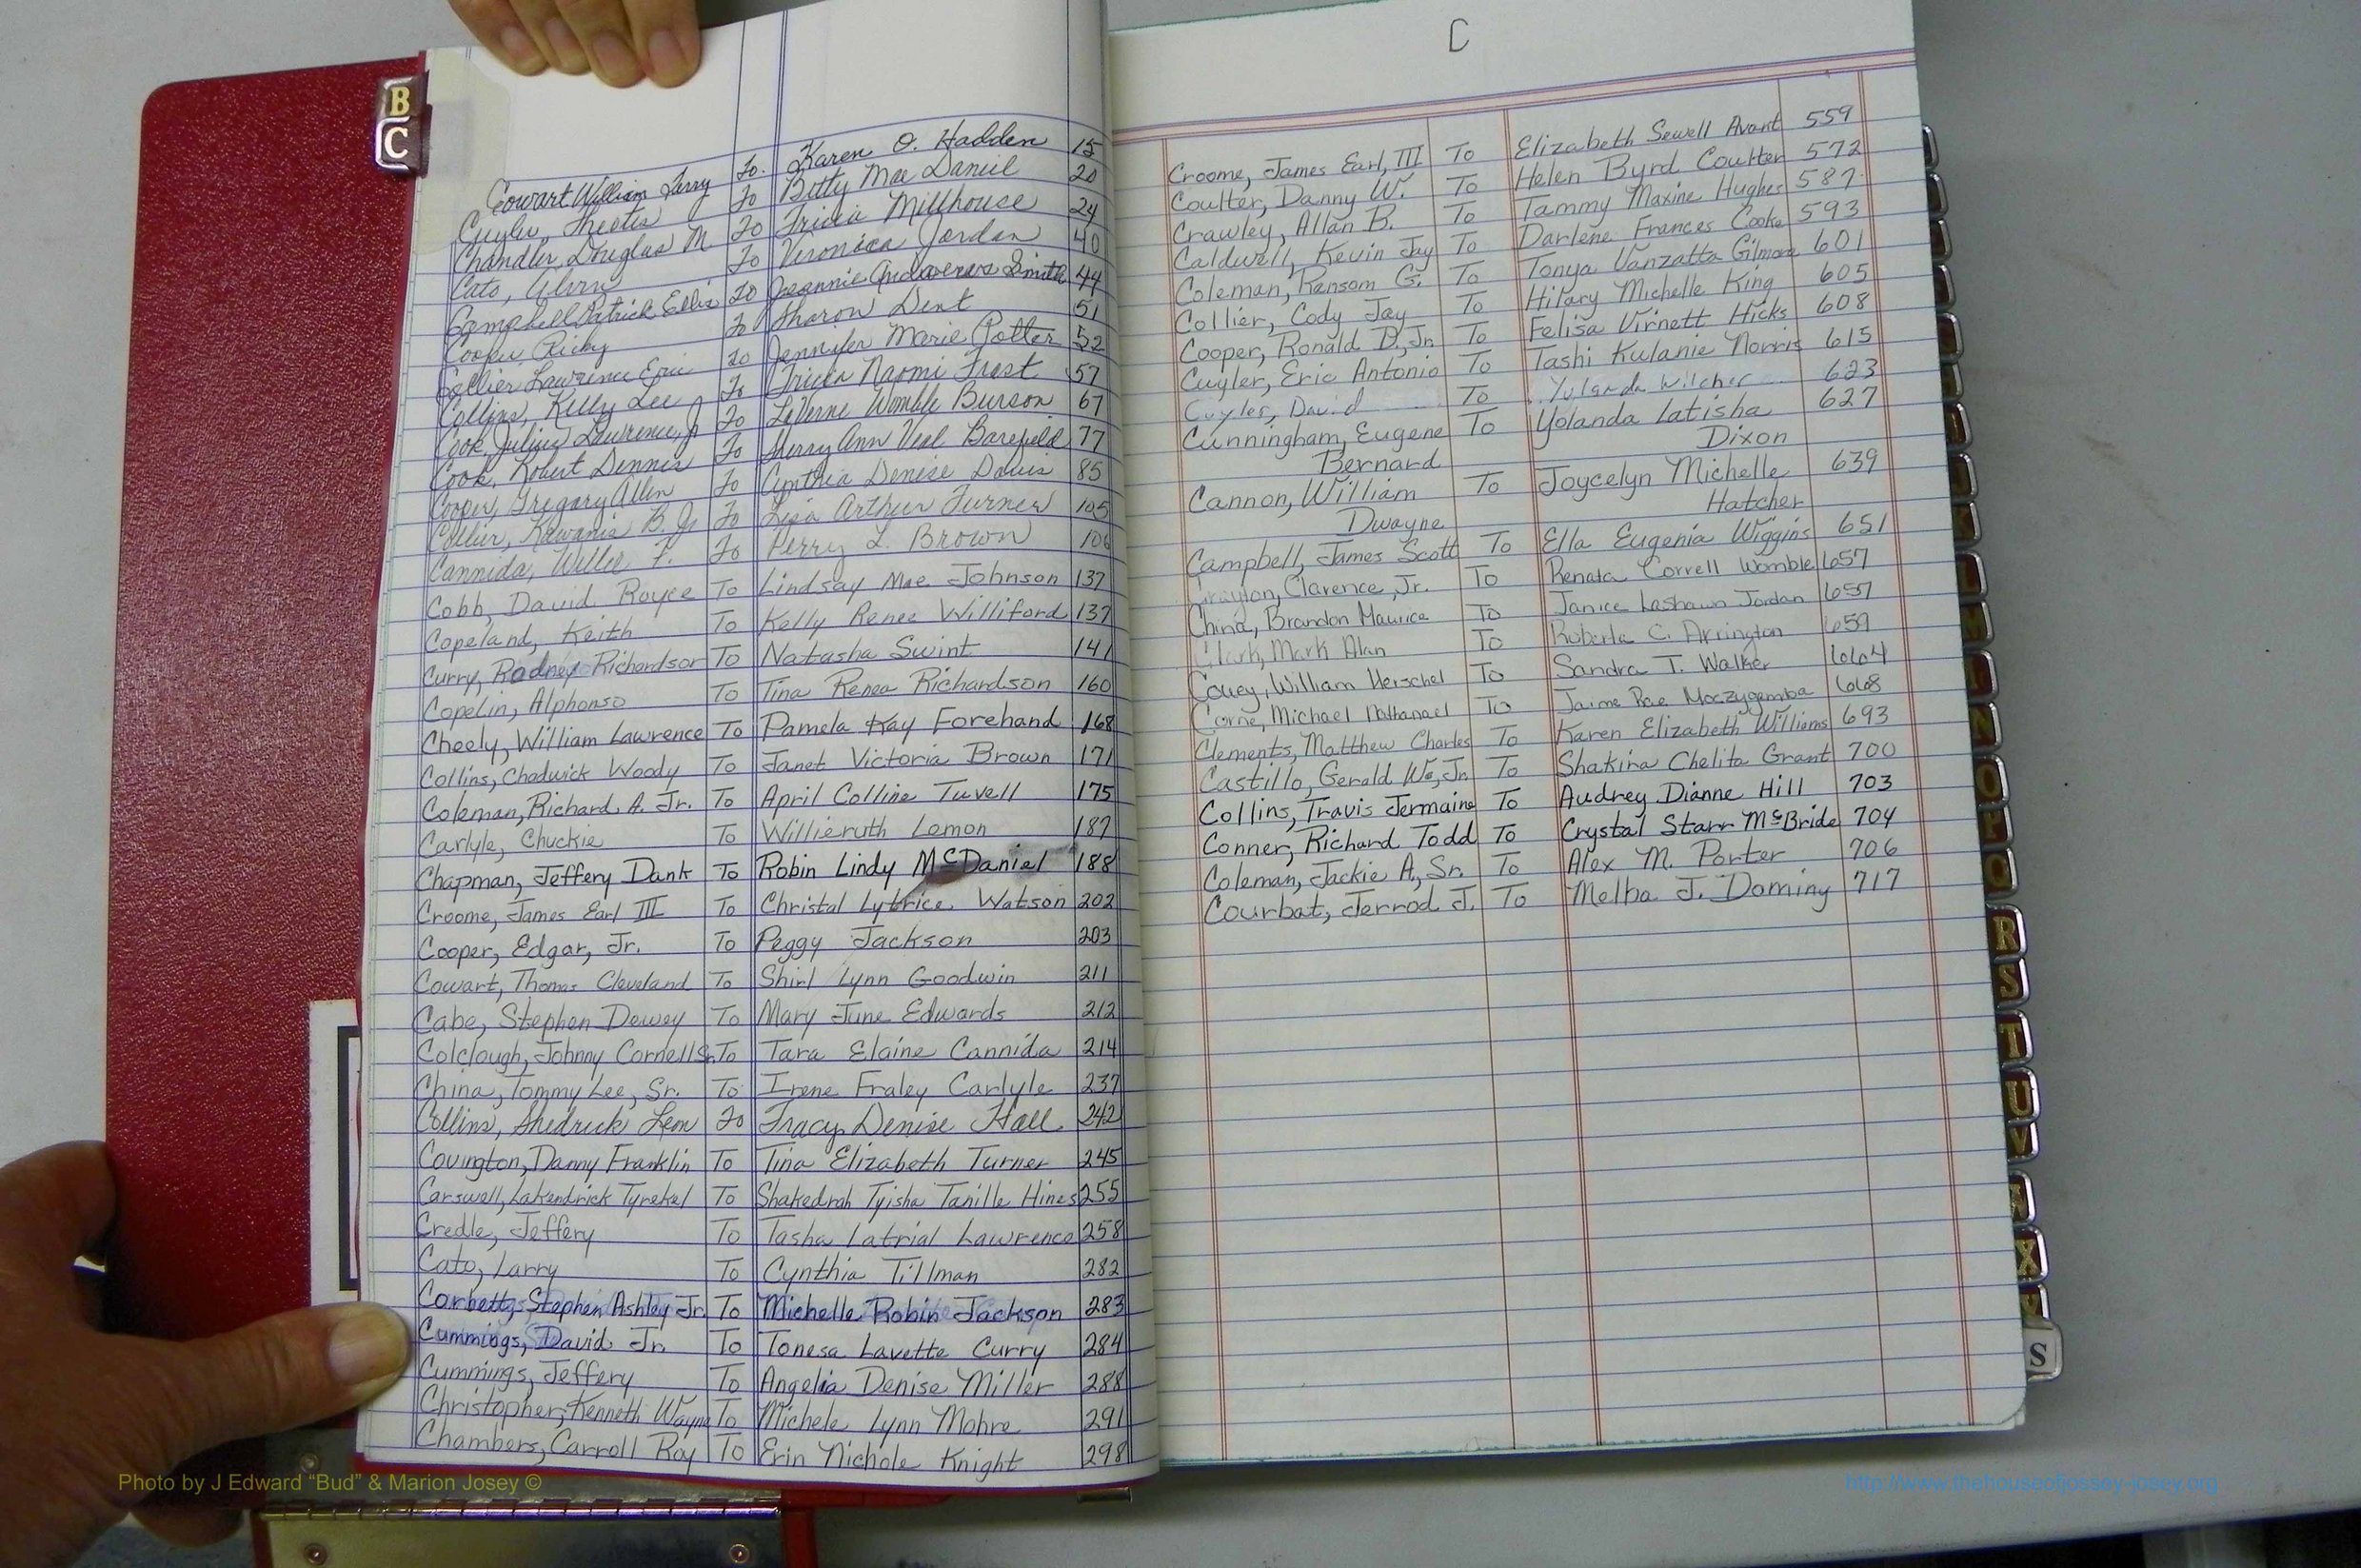 B
C
Cowart William Terry To. Karen O. Hadden 15
Cuyler, Theotis To Betty Mae Daniel 20
Chandler, Douglas M To Tricia Millhouse 24
Cato, Alvin To Veronica Jordan 40
Campbell Patrick Ellis To Jeannie Smith 44
Cooper Ricky To Sharon Dent 51
Collier Lawrence Eric To Jennifer Marie Potter 52
Collins, Kelly Lee To Tricia Naomi Frost 57
Cook, Julius Lawrence, Jr To LaVerne Womble Burson 67
Cook, Robert Dennis To Sherry Ann Veal Barefield 77
Cooper, Gregory Allen To Cynthia Denise Davis 85
Collier, Kawanis B. Jr To Lisa Arthur Turner 105
Cannida, Willie F. To Perry L. Brown 106
Cobb, David Royce To Lindsay Mae Johnson 137
Copeland, Keith To Kelly Renee Williford 137
Curry, Rodney Richardson To Natasha Swint 141
Copelin, Alphonso To Tina Renea Richardson 160
Cheely, William Lawrence To Pamela Kay Forehand 168
Collins, Chadwick Woody To Janet Victoria Brown 171
Coleman, Richard A. Jr. To April Colline Tuvell 175
Carlyle, Chuckie To Willieruth Lemon 187
Chapman, Jeffery Dank To Robin Lindy McDaniel 188
Croome, James Earl III To Christal Lytrice Watson 202
Cooper, Edgar, Jr. To Peggy Jackson 203
Cowart, Thomas Cleveland To Shirl Lynn Goodwin 211
Cabe, Stephen Dewey To Mary June Edwards 212
Colclough, Johnny Cornell Sr. To Tara Elaine Cannida 214
China, Tommy Lee, Sr. To Irene Fraley Carlyle 237
Collins, Shedrick Leon To Tracy Denise Hall. 242
Covington, Danny Franklin To Tina Elizabeth Turner 245
Carswell, Lakendrick Tyrekel To Shakedrah Tyisha Tanille Hines 255
Credle, Jeffery To Tasha Latrial Lawrence 258
Cato, Larry To Cynthia Tillman 282
Corbett, Stephen Ashley Jr. To Michelle Robin Jackson 283
Cummings, David Jr. To Tonesa Lavette Curry 284
Cummings, Jeffery To Angelia Denise Miller 288
Christopher, Kenneth Wayne To Michele Lynn Mohre 291
Chambers, Carroll Roy To Erin Nichole Knight 298
C
Croome, James Earl, III To Elizabeth Sewell Avant 559
Coulter, Danny W. To Helen Byrd Coulter 572
Crawley, Allan B. To Tammy Maxine Hughes 587
Caldwell, Kevin Jay To Darlene Frances Cooke 593
Coleman, Ransom G. To Tonya Vanzatta Gilmore 601
Collier, Cody Jay To Hilary Michelle King 605
Cooper, Ronald D., Jr. To Felisa Virnett Hicks 608
Cuyler, Eric Antonio To Tashi Kulanie Norris 615
Cuyler, David To Yolanda Wilcher 623
Cunningham, Eugene To Yolanda Latisha 627
Bernard Dixon
Cannon, William To Joycelyn Michelle 639
Dwayne Hatcher
Campbell, James Scott To Ella Eugenia Wiggins 651
Clarence, Jr. To Renata Correll Womble 657
China, Brandon Maurice To Janice Lashawn Jordan 657
Clark, Mark Alan To Roberta C. Arrington 659
Couey, William Herschel To Sandra T. Walker 664
Corne, Michael Nathanael To Jaime Rae Moczygemba 668
Clements, Matthew Charles To Karen Elizabeth Williams 693
Castillo, Gerald Wo, Jr. To Shakira Chelita Grant 700
Collins, Travis Jermaine To Audrey Dianne Hill 703
Conner, Richard Todd To Crystal Starr McBride 704
Coleman, Jackie A., Sr. To Alex M. Porter 706
Courbat, Jerrod J. To Melba J. Doming 717
L
M
N
O
P
Q
R
S
T
U
V
X
S
Photo by J Edward “Bud” & Marion Josey ©
http://www.thehouseofjossey-josey.org